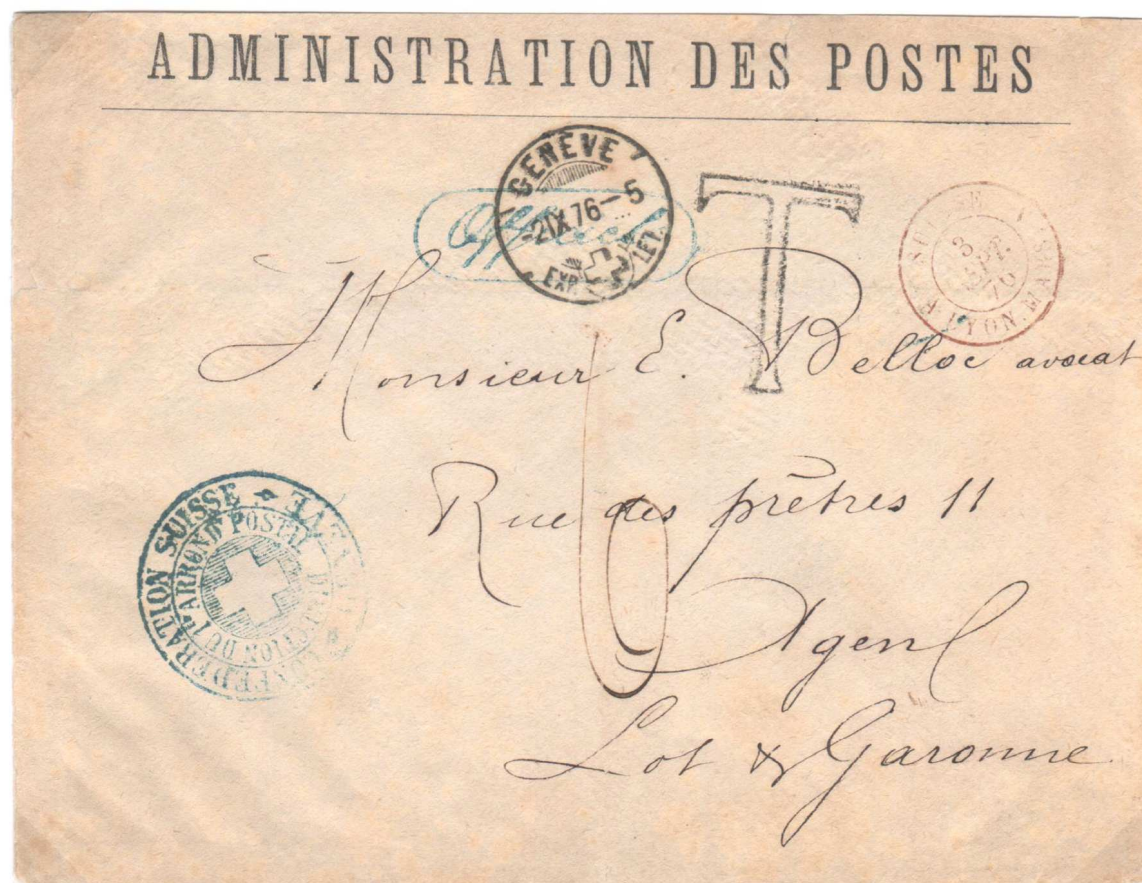 ADMINISTRATION DES POSTES
GENÈVE
-2 IX 76-5
EXP. LET.
Officiel
T
3
SEPT.
76
LYON MARS
Monsieur E. Belloc avocat
Rue des prêtres 11
Agen
Lot & Garonne
6
CONFEDERATION SUISSE * GENEVE *
DIRECTION DU Iᵉʳ ARRONDᵗ POSTAL